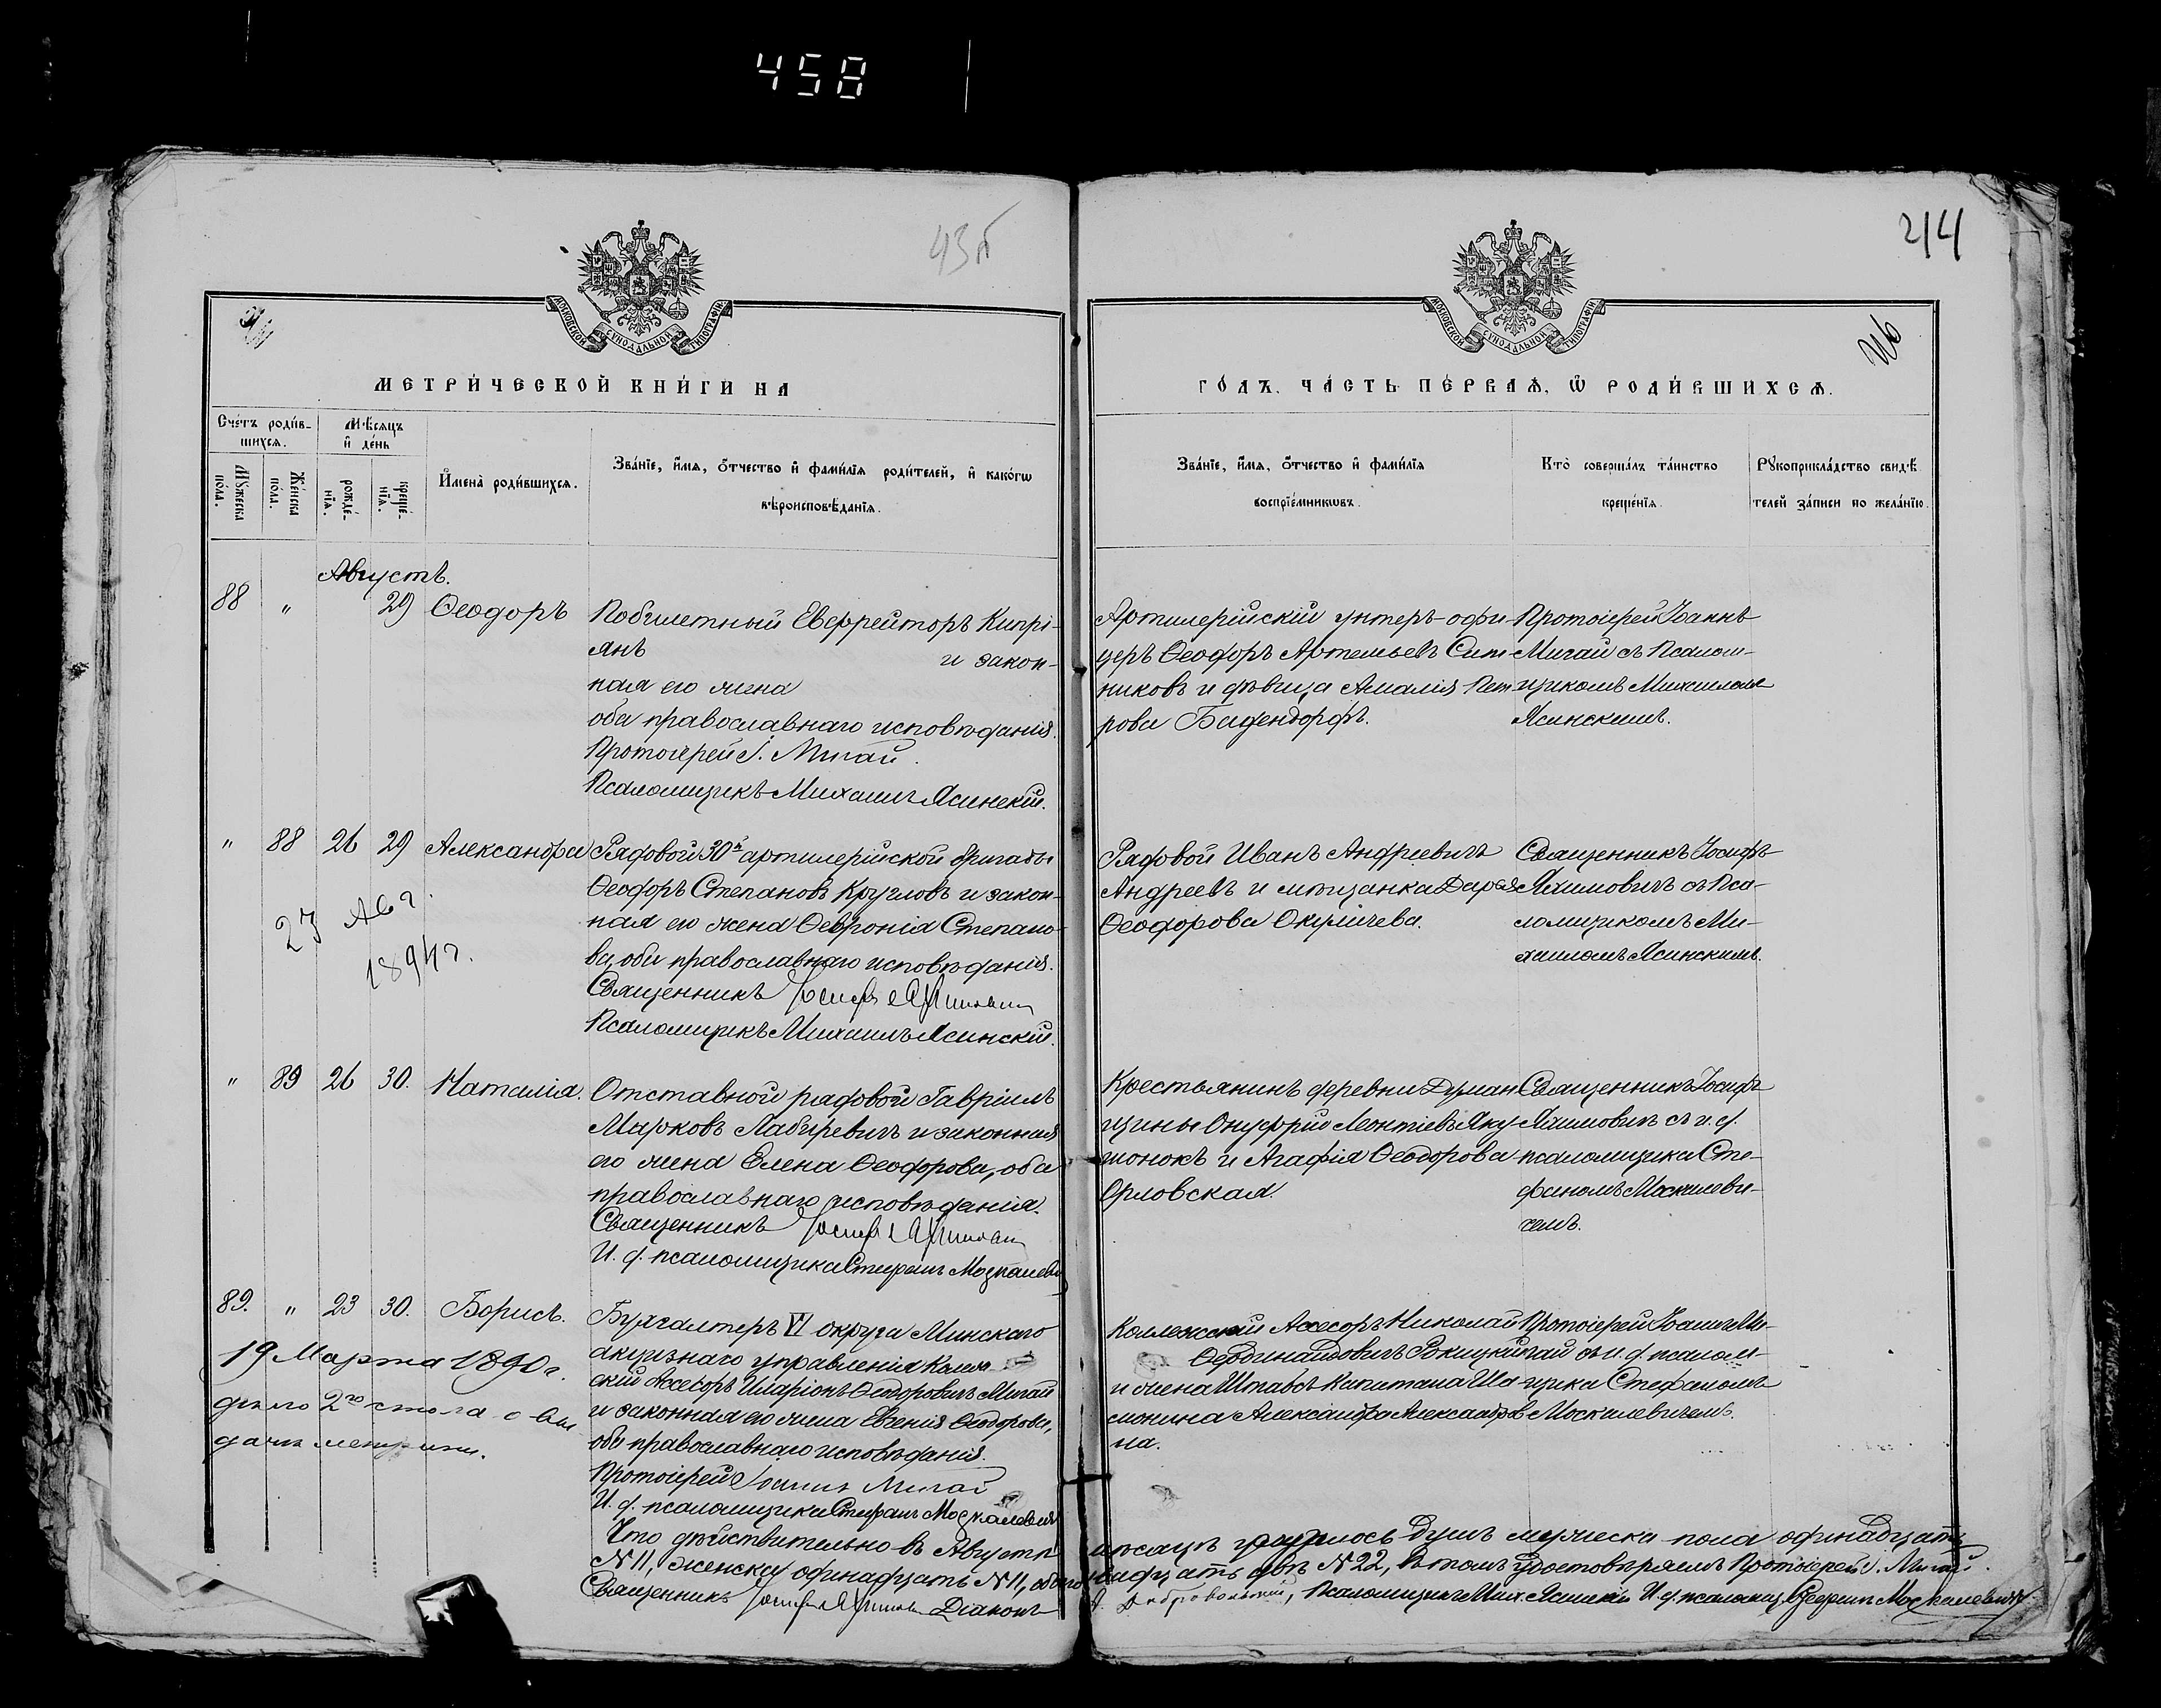 458
43п
244
МОСКОВСКОЙ СѴНОДАЛЬНОЙ ТИПОГРАФІИ
МОСКОВСКОЙ СѴНОДАЛЬНОЙ ТИПОГРАФІИ
МЕТРИ́ЧЕСКОЙ КНИ́ГИ НА
ГО́ДЪ, ЧА́СТЬ ПЕ́РВАѦ, Ѡ҆ РОДИ́ВШИХСѦ.
Сче́тъ роди́в-
шихсѧ.
Мꙋ́жеска по́ла.
Же́нска по́ла.
Мѣ́сѧцъ
и҆ де́нь
рожде́-нїѧ.
креще́-нїѧ.
И҆мена̀ роди́вшихсѧ.
Зва́нїе, и҆́мѧ, ѻ҆́тчество и҆ фами́лїѧ роди́телей, и҆ како́гѡ
вѣроисповѣ́данїѧ.
Зва́нїе, и҆́мѧ, ѻ҆́тчество и҆ фами́лїѧ
воспрїе́мникѡвъ.
Кто̀ соверша́лъ та́инство
креще́нїѧ.
Рꙋкоприкла́дство свидѣ́-
телей за́писи по жела́нїю.
Августъ.
88 " 29 Ѳеодоръ
Побилетный Евфрейторъ Кипрі-
янъ и закон-
ная его жена
оба православнаго исповѣданія.
Протоіерей І. Мигай.
Псаломщикъ Михаилъ Ясинскій.
Артилерійскій унтеръ-офи-
церъ Ѳеодоръ Артемьевъ Сит
никовъ и дѣвица Амалія Пет
рова Бадендорфъ.
Протоіерей Іоаннъ
Мигай съ Псалом-
щикомъ Михаиломъ
Ясинскимъ.
" 88 26 29 Александра
27 Авг.
1894 г.
Рядовой 30й артилерійской бригады
Ѳеодоръ Степановъ Кругловъ и закон-
ная его жена Ѳевронія Степано-
ва, оба православнаго исповѣданія.
Священникъ Іосифъ Яхимовичъ
Псаломщикъ Михаилъ Ясинскій.
Рядовой Иванъ Андреевичъ
Андреевъ и мѣщанка Дарья
Ѳеодорова Окуличева.
Священникъ Іосифъ
Яхимовичъ съ Пса-
ломщикомъ Ми-
хаиломъ Ясинскимъ.
" 89 26 30. Наталія.
Отставной рядовой Гавріилъ
Марковъ Лабиревичъ и законная
его жена Елена Ѳеодорова, оба
православнаго исповѣданія.
Священникъ Іосифъ Яхимовичъ
И. д. псаломщика Стефанъ Москалевич
Крестьянинъ деревни Думан
щины Онуфрій Леонтіевъ Яку
шонокъ и Агафія Ѳеодорова
Орловская.
Священникъ Іосифъ
Яхимовичъ съ и. д.
псаломщика Сте-
фаномъ Москалеви-
чемъ.
89. " 23 30. Борисъ.
19 Марта 1890 г.
дѣло 2го стола о вы
дачѣ метрики.
Бухгалтеръ VI округа Минскаго
акцизнаго управленія Колеж-
скій Ассесоръ Иларіонъ Ѳеодоровичъ Мигай
и законная его жена Евгенія Ѳеодорова,
оба православнаго исповѣданія.
Протоіерей Іоаннъ Мигай
И. д. псаломщика Стефанъ Москалевичъ
Коллежскій Ассесоръ Николай
Фердинандовичъ Рокицкій
и жена Штабсъ Капитана Ша
монина Александра Александров
на.
Протоіерей Іоаннъ Ми-
гай съ и. д. псалом-
щика Стефаномъ
Москалевичемъ.
Что дѣйствительно въ Августѣ мѣсяцѣ родилось душъ мужеска пола одинадцать
N 11, женска одинадцать N 11, обоего двадцать двѣ N 22, въ томъ удостовѣряемъ Протоіерей І. Мигай.
Священникъ Іосифъ Яхимович Діаконъ А. Добровольскій, Псаломщикъ Мих. Ясинскій И. д. псаломщ. Стефанъ Москалевичъ.